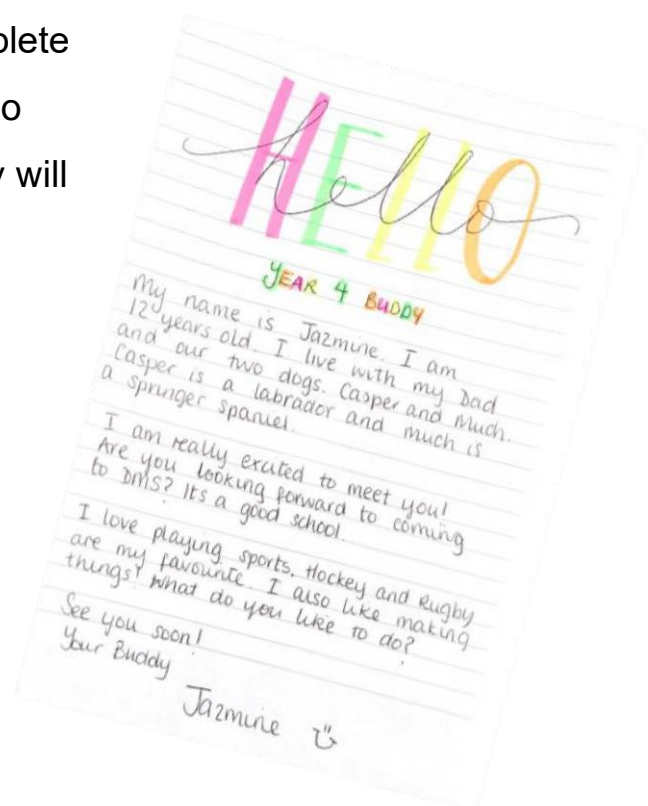 plete
o
y will
HELLO
hello
YEAR 4 BUDDY
My name is Jazmine. I am
12 years old. I live with my Dad
and our two dogs. Casper and Much.
Casper is a labrador and much is
a springer spaniel.
I am really excited to meet you!
Are you looking forward to coming
to DMS? Its a good school.
I love playing sports. Hockey and Rugby
are my favourite. I also like making
things! What do you like to do?
See you soon!
Your Buddy
Jazmine